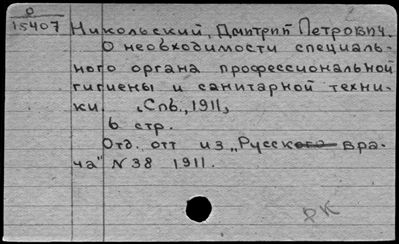 0
15407
Никольский, Дмитрий Петрович.
О необходимости специаль-
ного органа профессиональной
гигиены и санитарной техни-
ки. Спб., 1911,
6 стр.
Отд. отт из „Русского вра-
ча" N 38 1911.
РК